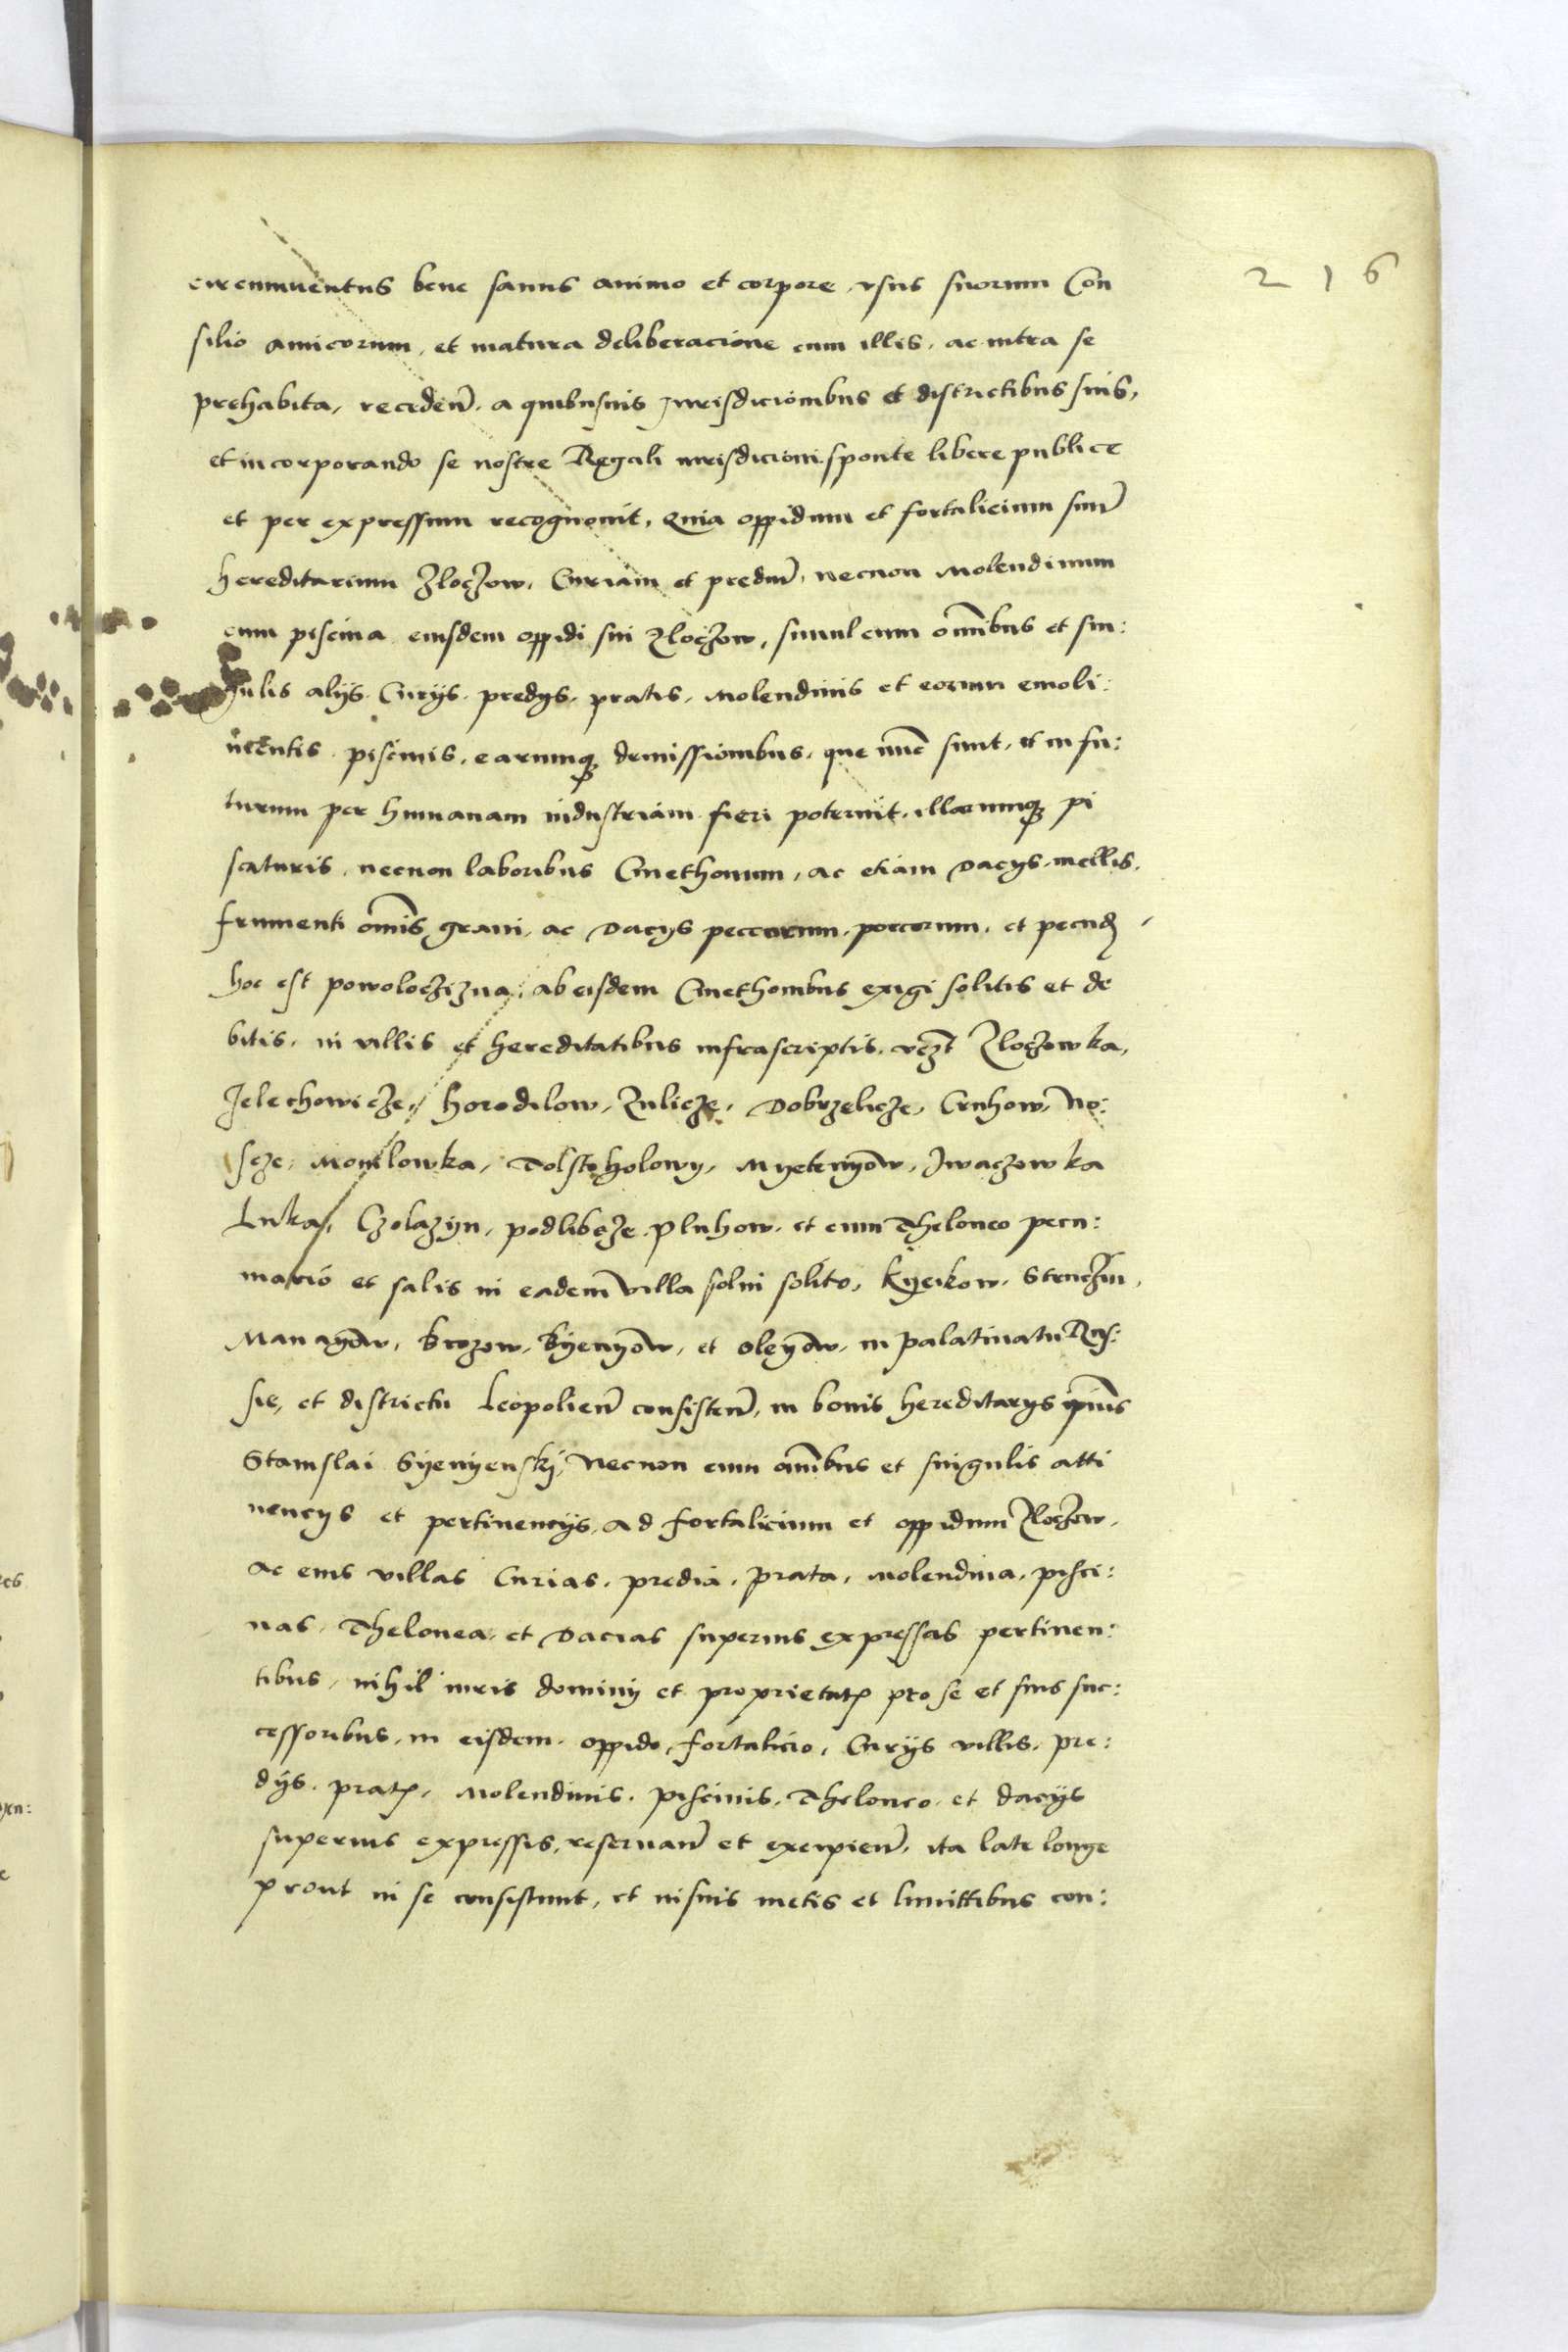 216
circumventus bene sanus animo et corpore, usus suorum Con
silio amicorum, et matura deliberacione cum illis, ac intra se
prehabita, receden̄. a quibusuis Jurisdicionibus et districtibus suis,
et incorporando se nostre Regali iurisdicioni sponte libere publice
et per expressum recognouit, Quia oppidum et fortalicium suum̄
hereditarium Zloczow, Curiam et prediū, necnon Molendinum
cum piscina eiusdem oppidi sui Zloczow, simul cum om̄ibus et sin:
gulis alijs Curijs. predijs. pratis. Molendinis et eorum emoli:
mentis. piscinis, earumq; demissionibus, que nunc sunt, et in fu:
turum per humanam industriam fieri poterint. illarumq; pi
scaturis, necnon laboribus Cmethonum, ac etiam Dacijs mellis,
frumenti om̄is grani, ac Dacijs peccorum, porcorum, et pecud
hoc est powoloczizna, ab eisdem Cmethonibus exigi solitis et de
bitis, in villis et hereditatibus infrascriptis, vczt Zloczowka,
Jelechowicze, horodilow, Zulicze, Dobrzelicze, Cruhow, No:
scze, Monilowka, Tolstoholowy, Myetenyow, Iwaczowka
Luka, Czolazyn, podlibcze. Pluhow, et cum Theloneo pecu:
niario et salis in eadem villa solui solito, Kyeikow, Struczin,
Manayow, Brozow, Byenyow, et Oleyow, in palatinatu Rus:
sie, et districtu Leopolien̄ consisten̄, in bonis hereditarijs ipsius
Stanislai Syenyenskj, Necnon cum om̄ibus et singulis atti
nencijs et pertinencijs, ad fortalicium et oppidum Zloczow,
ac eius villas Curias, predia, prata, Molendina, pisci:
nas, Thelonea, et Dacias superius expressas pertinen:
tibus, nihil iuris dominij et proprietatis pro se et suis suc:
cessoribus, in eisdem oppido, fortalicio, Curijs villis, pre:
dijs. pratis, Molendinis. piscinis. Theloneo. et dacijs
superius expressis, reseruan̄ et excipien̄, ita late longe
prout in se consistunt, et in suis metis et limittibus con: